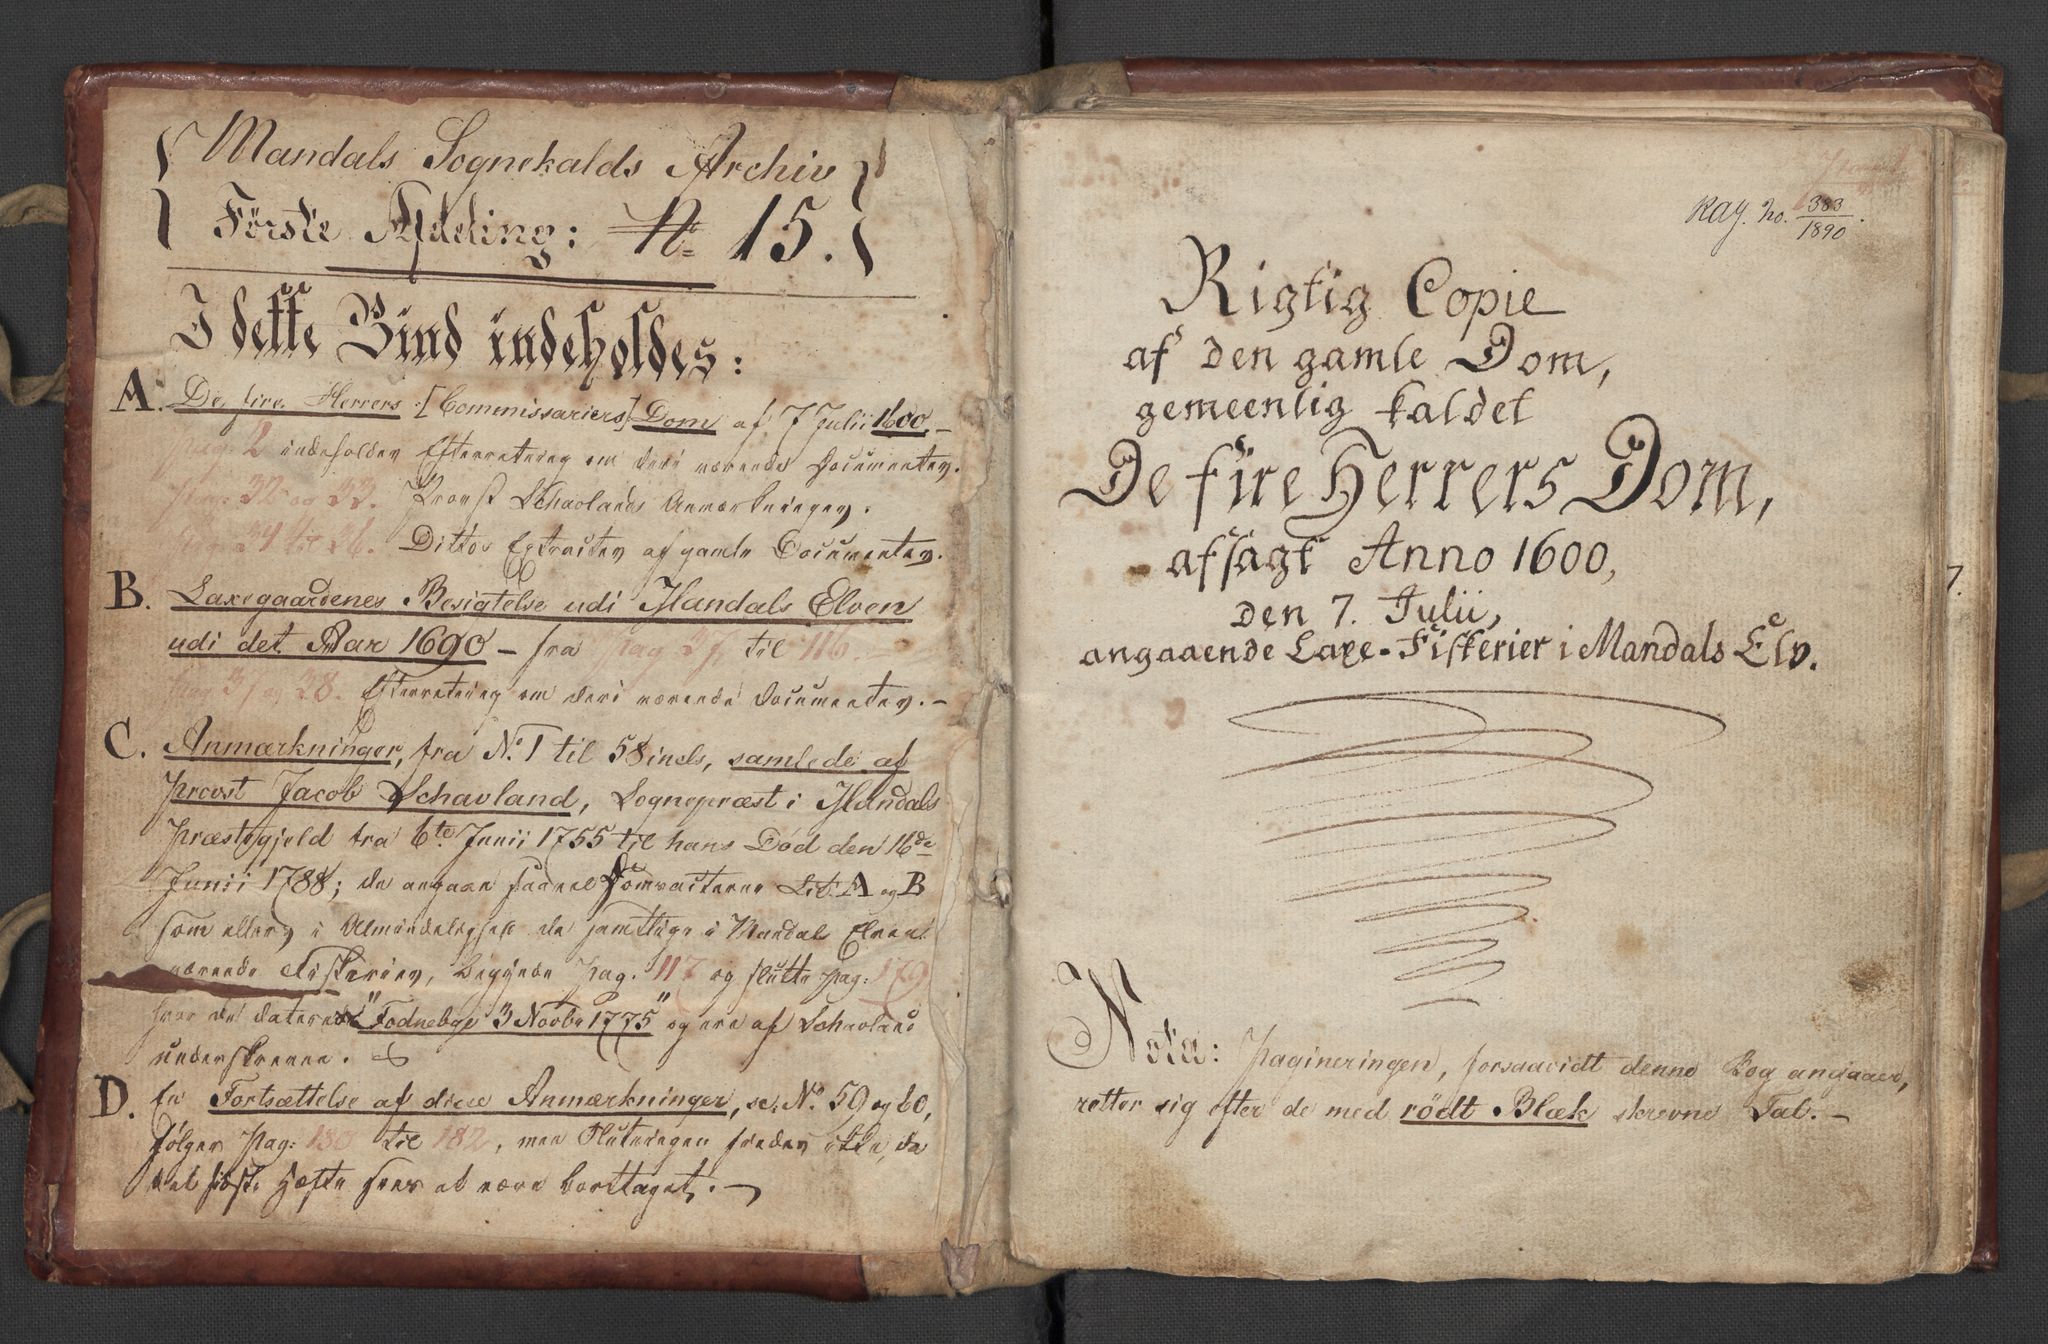 Mandals Sognekalds Archiv
Første Afdeling: No 15.
I dette Bind indeholdes:
A. De fire Herrers [Commissariers] Dom af 7 Julii 1600. –
pag: 2 indeholder Efterretning om dette værende Documenter.
pag: 32 og 33. Provst Schavlands Anmærkninger.
pag: 34 til 36. Dittos Extracter af gamle Documenter.
B. Laxegaardenes Besigtelse udi Mandals Elven
udi det Aar 1690 – fra pag 37 til 116. –
pag 37 og 38. Efterretning om deri værende Documenter. –
C. Anmærkninger, fra No. 1 til 58 incls, samlede af
Provst Jacob Schavland, Sognepræst i Mandals
Præstegjeld fra 6te Junii 1755 til hans Død den 16de
Junii 1788; de angaae saavel Lit: A og B
som ellers i Almindelighed de samtlige i Mandals Elven
værende Fiskerier, begynde pag. 117 og slutte pag: 179
hvor de daterede "Fodnebye 3 Novbr 1775" og ere af Schavland
underskrevne.
D. En Fortsættelse af disse Anmærkninger, sc: No. 59 og 60,
følger pag: 180 til 182, men Slutningen findes ikke, da
det sidste Hefte synes at være borttaget. –
Pag. 1
Kay. No. 383/1890.
Rigtig Copie
af den gamle Dom,
gemeenlig kaldet
De fire Herrers Dom,
afsagt Anno 1600,
den 7. Julii,
angaaende Laxe-Fiskerier i Mandals Elv.
Nota: Pagineringen, forsaavidt denne Bog angaaer,
retter sig efter de med rödt Blæk skrevne Tal. –
7.